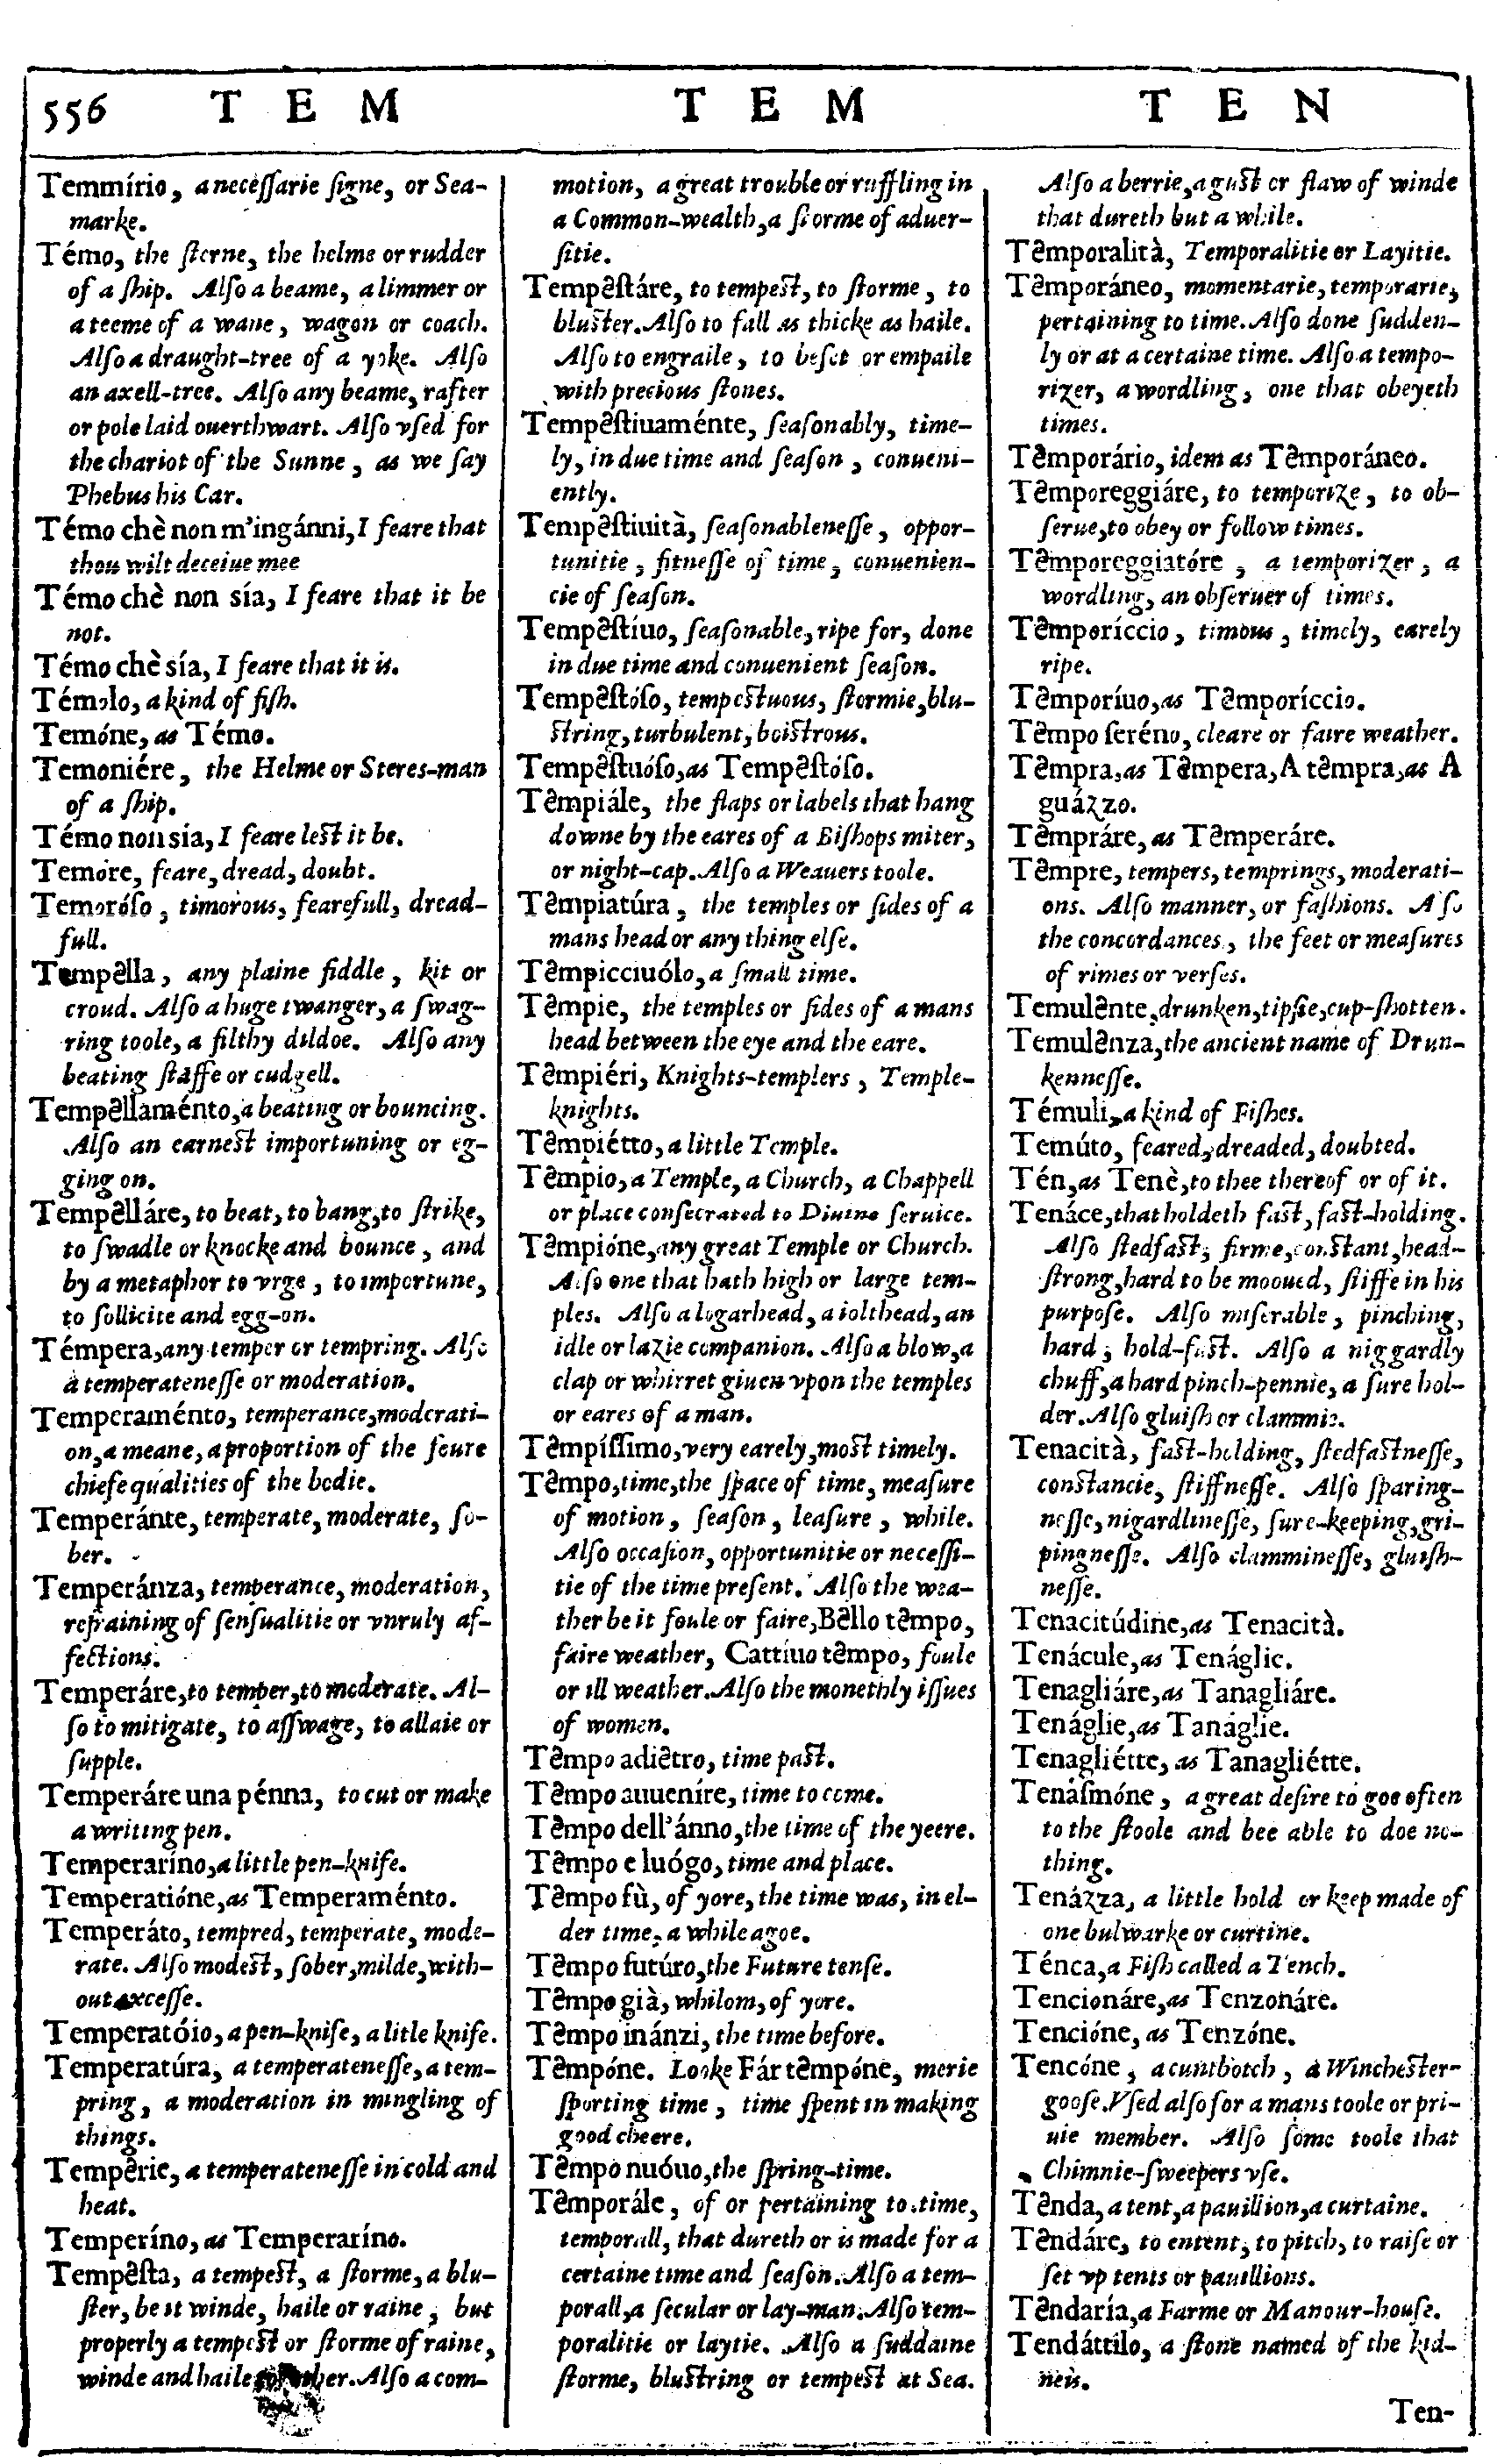 556 TEM TEM TEN
Temmírio, a necessarie signe, or Sea-
marke.
Témo, the sterne, the helme or rudder
of a ship. Also a beame, a limmer or
a teeme of a wane, wagon or coach.
Also a draught-tree of a yoke. Also
an axell-tree. Also any beame, rafter
or pole laid ouerthwart. Also vsed for
the chariot of the Sunne, as we say
Phebus his Car.
Témo chè non m'ingánni, I feare that
thou wilt deceiue mee
Témo chè non sía, I feare that it be
not.
Témo chè sía, I feare that it is.
Témolo, a kind of fish.
Temóne, as Témo.
Temoniére, the Helme or Steres-man
of a ship.
Témo non sía, I feare lest it be.
Temóre, feare, dread, doubt.
Temoróso, timorous, fearefull, dread-
full.
Tempêlla, any plaine fiddle, kit or
croud. Also a huge twanger, a swag-
ring toole, a filthy dildoe. Also any
beating staffe or cudgell.
Tempêllaménto, a beating or bouncing.
Also an earnest importuning or eg-
ging on.
Tempêlláre, to beat, to bang, to strike,
to swadle or knocke and bounce, and
by a metaphor to vrge, to importune,
to sollicite and egg-on.
Témpera, any temper or tempring. Also
a temperatenesse or moderation.
Temperaménto, temperance, moderati-
on, a meane, a proportion of the foure
chiefe qualities of the bodie.
Temperánte, temperate, moderate, so-
ber.
Temperánza, temperance, moderation,
refraining of sensualitie or vnruly af-
fections.
Temperáre, to temper, to moderate. Al-
so to mitigate, to asswage, to allaie or
supple.
Temperáre una pénna, to cut or make
a writing pen.
Temperaríno, a little pen-knife.
Temperatióne, as Temperaménto.
Temperáto, tempred, temperate, mode-
rate. Also modest, sober, milde, with-
out excesse.
Temperatóio, a pen-knife, a litle knife.
Temperatúra, a temperatenesse, a tem-
pring, a moderation in mingling of
things.
Tempêrie, a temperatenesse in cold and
heat.
Temperíno, as Temperaríno.
Tempêsta, a tempest, a storme, a blu-
ster, be it winde, haile or raine, but
properly a tempest or storme of raine,
winde and haile together. Also a com-
motion, a great trouble or ruffling in
a Common-wealth, a storme of aduer-
sitie.
Tempêstáre, to tempest, to storme, to
bluster. Also to fall as thicke as haile.
Also to engraile, to beset or empaile
with precious stones.
Tempêstiuaménte, seasonably, time-
ly, in due time and season, conueni-
ently.
Tempêstiuità, seasonablenesse, oppor-
tunitie, fitnesse of time, conuenien-
cie of season.
Tempêstíuo, seasonable, ripe for, done
in due time and conuenient season.
Tempêstóso, tempestuous, stormie, blu-
string, turbulent, boistrous.
Tempêstuóso, as Tempêstóso.
Têmpiále, the flaps or labels that hang
downe by the eares of a Bishops miter,
or night-cap. Also a Weauers toole.
Têmpiatúra, the temples or sides of a
mans head or any thing else.
Têmpicciuólo, a small time.
Têmpie, the temples or sides of a mans
head between the eye and the eare.
Têmpiéri, Knights-templers, Temple-
knights.
Têmpiétto, a little Temple.
Têmpio, a Temple, a Church, a Chappell
or place consecrated to Diuine seruice.
Têmpióne, any great Temple or Church.
Also one that hath high or large tem-
ples. Also a logarhead, a iolthead, an
idle or lazie companion. Also a blow, a
clap or whirret giuen vpon the temples
or eares of a man.
Têmpíssimo, very earely, most timely.
Têmpo, time, the space of time, measure
of motion, season, leasure, while.
Also occasion, opportunitie or necessi-
tie of the time present. Also the wea-
ther be it foule or faire, Bêllo têmpo,
faire weather, Cattíuo têmpo, foule
or ill weather. Also the monethly issues
of women.
Têmpo adiêtro, time past.
Têmpo auueníre, time to come.
Têmpo dell'ánno, the time of the yeere.
Têmpo e luógo, time and place.
Têmpo fù, of yore, the time was, in el-
der time, a while agoe.
Têmpo futúro, the Future tense.
Têmpo già, whilom, of yore.
Têmpo inánzi, the time before.
Têmpóne. Looke Fár têmpóne, merie
sporting time, time spent in making
good cheere.
Têmpo nuóuo, the spring-time.
Têmporále, of or pertaining to time,
temporall, that dureth or is made for a
certaine time and season. Also a tem-
porall, a secular or lay-man. Also tem-
poralitie or laytie. Also a suddaine
storme, blustring or tempest at Sea.
Also a berrie, a gust or flaw of winde
that dureth but a while.
Têmporalità, Temporalitie or Layitie.
Têmporáneo, momentarie, temporarie,
pertaining to time. Also done sudden-
ly or at a certaine time. Also a tempo-
rizer, a wordling, one that obeyeth
times.
Têmporário, idem as Têmporáneo.
Têmporeggiáre, to temporize, to ob-
serue, to obey or follow times.
Têmporeggiatóre, a temporizer, a
wordling, an obseruer of times.
Têmporíccio, timous, timely, earely
ripe.
Têmporíuo, as Têmporíccio.
Têmpo seréno, cleare or faire weather.
Têmpra, as Têmpera, A têmpra, as A
guázzo.
Têmpráre, as Têmperáre.
Têmpre, tempers, temprings, moderati-
ons. Also manner, or fashions. Also
the concordances, the feet or measures
of rimes or verses.
Temulênte, drunken, tipsie, cup-shotten.
Temulênza, the ancient name of Drun-
kennesse.
Témuli, a kind of Fishes.
Temúto, feared, dreaded, doubted.
Tén, as Tenè, to thee thereof or of it.
Tenáce, that holdeth fast, fast-holding.
Also stedfast, firme, constant, head-
strong, hard to be mooued, stiffe in his
purpose. Also miserable, pinching,
hard, hold-fast. Also a niggardly
chuff, a hard pinch-pennie, a sure hol-
der. Also gluish or clammie.
Tenacità, fast-holding, stedfastnesse,
constancie, stiffnesse. Also sparing-
nesse, nigardlinesse, sure-keeping, gri-
pingnesse. Also clamminesse, gluish-
nesse.
Tenacitúdine, as Tenacità.
Tenácule, as Tenáglie.
Tenagliáre, as Tanagliáre.
Tenáglie, as Tanáglie.
Tenagliétte, as Tanagliétte.
Tenásmóne, a great desire to goe often
to the stoole and bee able to doe no-
thing.
Tenázza, a little hold or keep made of
one bulwarke or curtine.
Ténca, a Fish called a Tench.
Tencionáre, as Tenzonáre.
Tencióne, as Tenzóne.
Tencóne, a cuntbotch, a Winchester-
goose. Vsed also for a mans toole or pri-
uie member. Also some toole that
Chimnie-sweepers vse.
Tênda, a tent, a pauillion, a curtaine.
Têndáre, to entent, to pitch, to raise or
set vp tents or pauillions.
Têndaría, a Farme or Manour-house.
Tendáttilo, a stone named of the kid-
neis.
Ten-